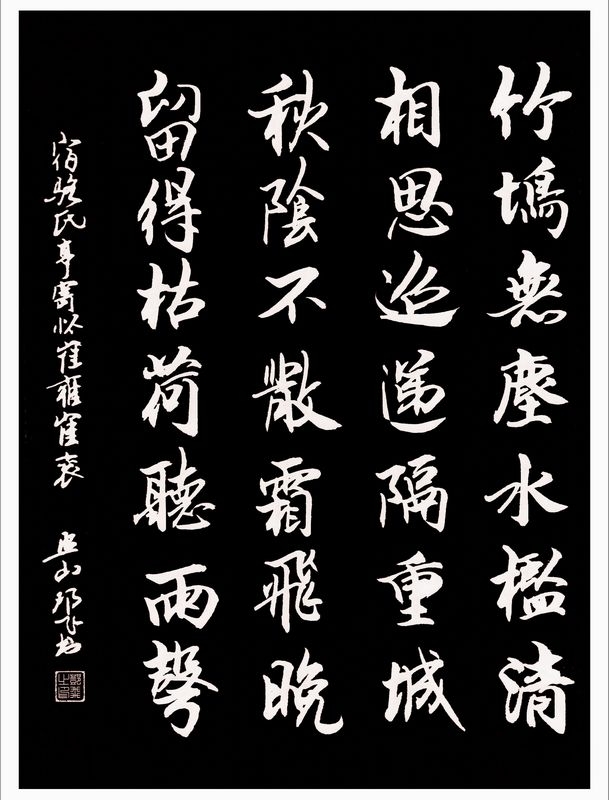 竹塢無塵水檻清
相思迢遞隔重城
秋陰不散霜飛晚
留得枯荷聽雨聲
宿駱氏亭寄懷崔雍崔衮